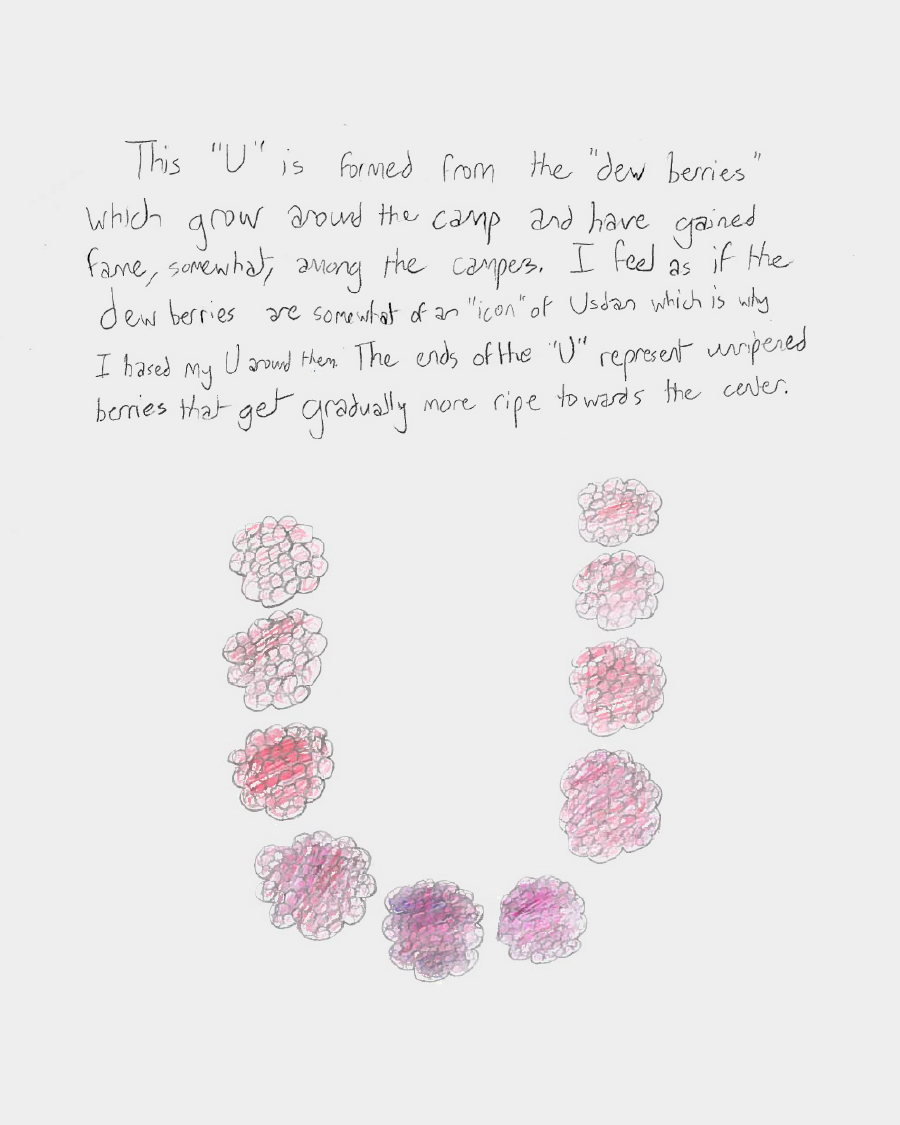 This "U" is formed from the "dew berries"
which grow around the camp and have gained
fame, somewhat, among the campers. I feel as if the
dew berries are somewhat of an "icon" of Usdan which is why
I based my U around them. The ends of the "U" represent unripened
berries that get gradually more ripe towards the center.